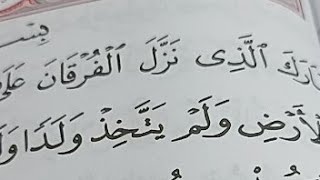 بِسْ
بَارَكَ ٱلَّذِى نَزَّلَ ٱلْفُرْقَانَ عَلَىٰ
ٱلْأَرْضِ وَلَمْ يَتَّخِذْ وَلَدًا وَلَ